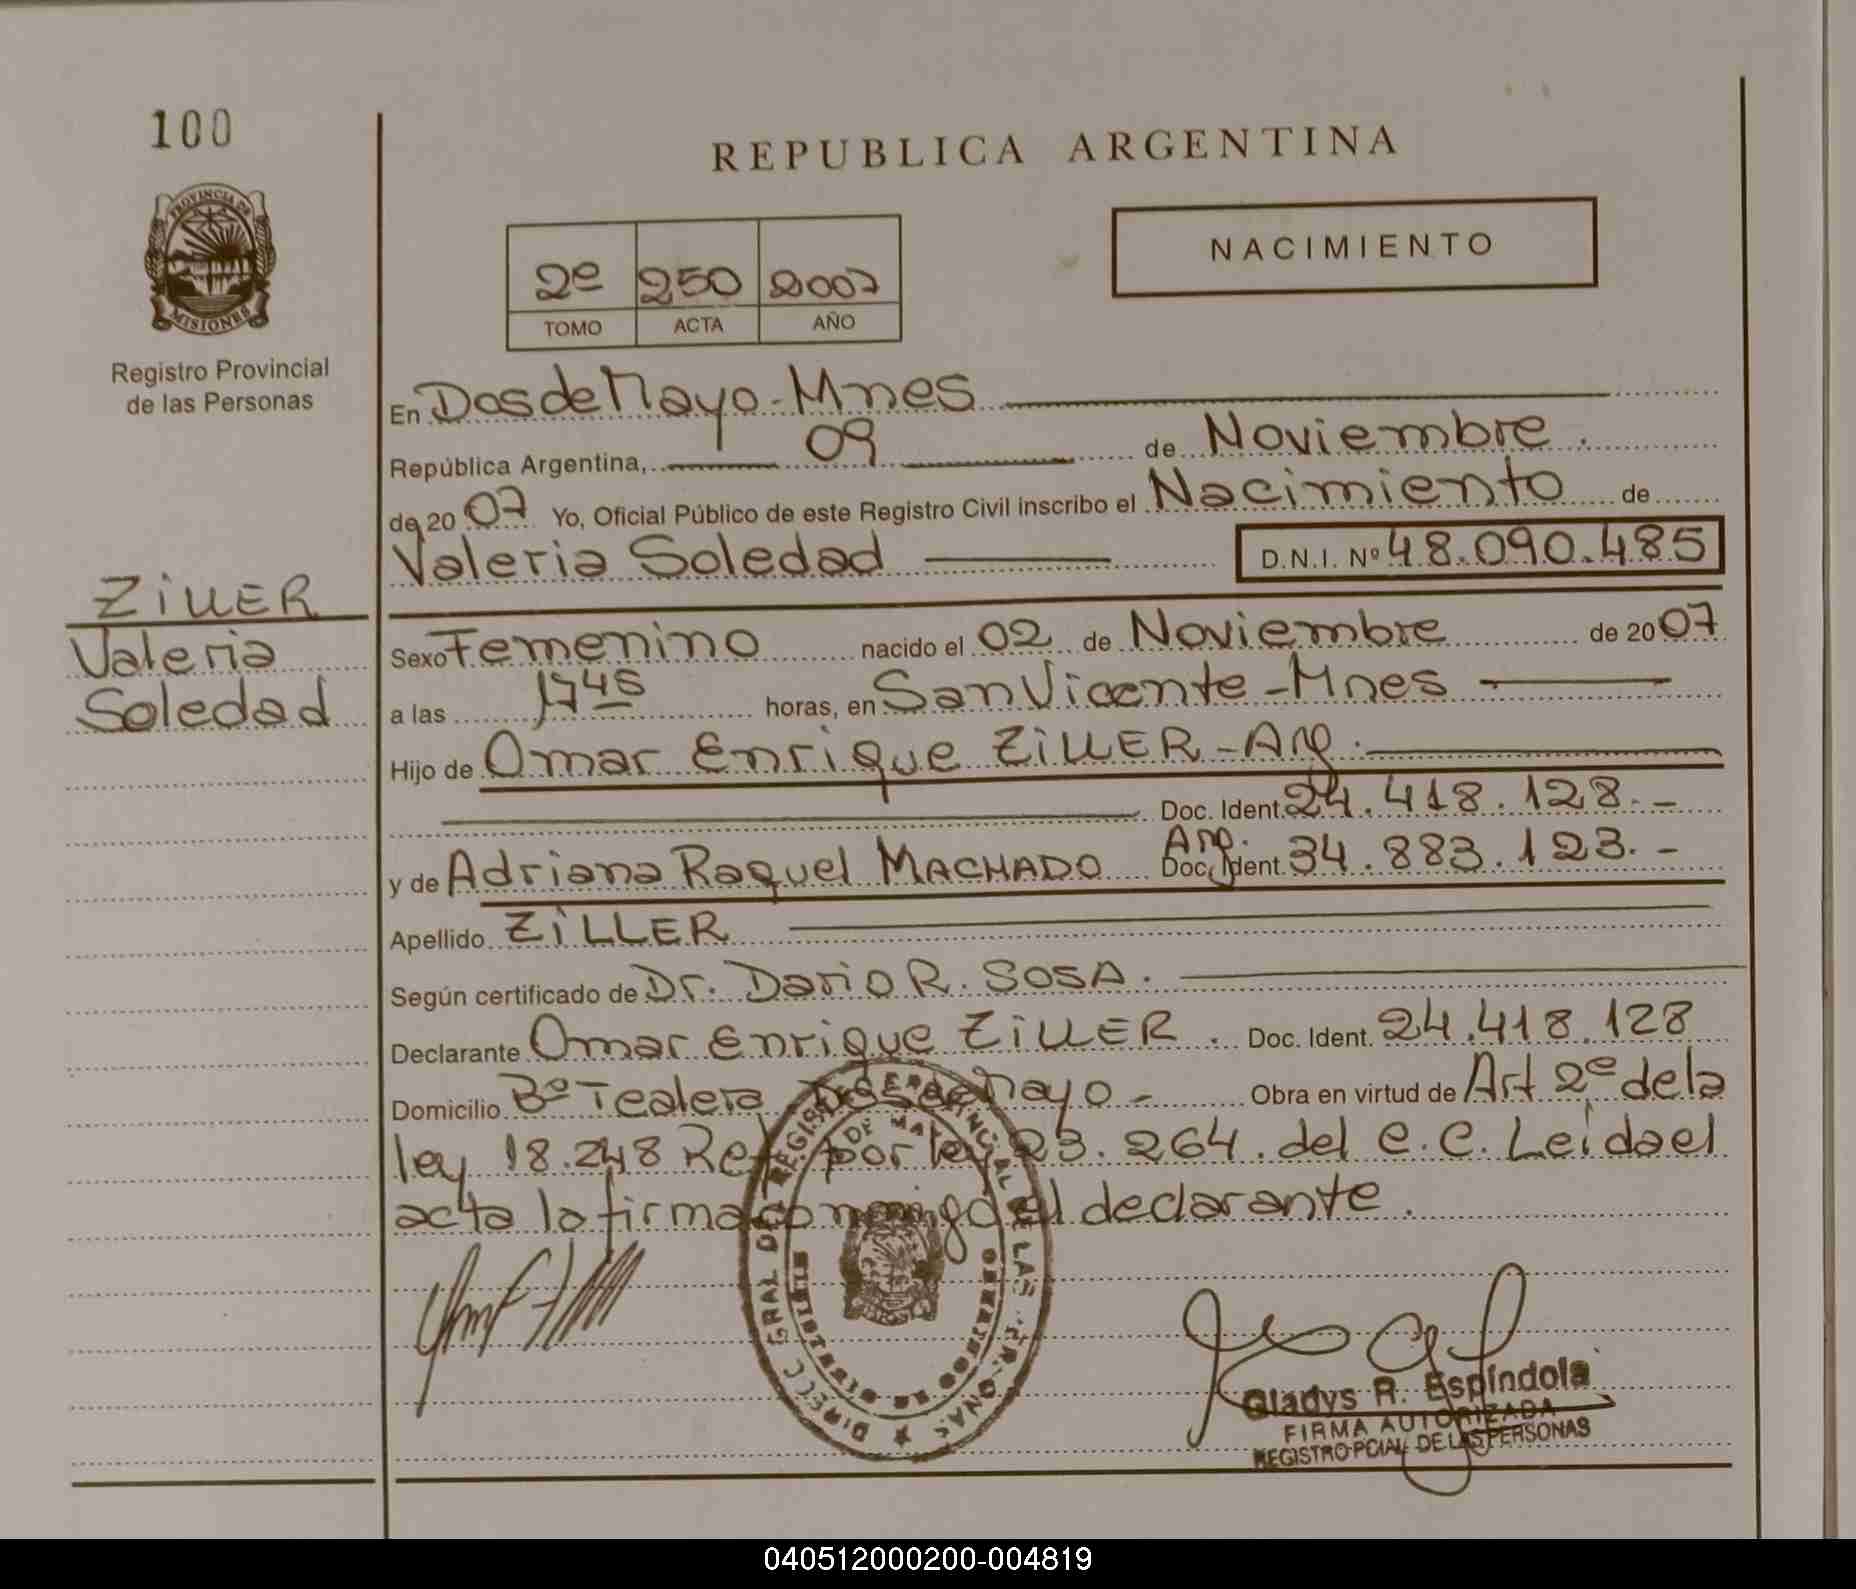 100
PROVINCIA DE
MISIONES
Registro Provincial
de las Personas
ZiLLER
Valeria
Soledad
REPUBLICA ARGENTINA
2º 250 2007
TOMO ACTA AÑO
NACIMIENTO
En Dos de Mayo - Mnes
República Argentina, 09 de Noviembre.
de 20 07 Yo, Oficial Público de este Registro Civil inscribo el Nacimiento de
Valeria Soledad D.N.I. Nº 48.090.485
Sexo Femenino nacido el 02 de Noviembre de 20 07
a las 1745 horas, en San Vicente - Mnes
Hijo de Omar Enrique ZiLLER - Arg.
Doc. Ident. 24.418.128.-
Arg.
y de Adriana Raquel MACHADO Doc. Ident. 34.883.123.-
Apellido ZiLLER
Según certificado de Dr. Dario R. SOSA.
Declarante Omar Enrique ZiLLER. Doc. Ident. 24.418.128
Domicilio Bº Tealera Dos de Mayo - Obra en virtud de Art 2º de la
ley 18.248 Ref por ley 23.264. del C.C. Leida el
acta la firma conmigo el declarante.
Gladys R. Espíndola
FIRMA AUTORIZADA
REGISTRO PCIAL DE LAS PERSONAS
040512000200-004819